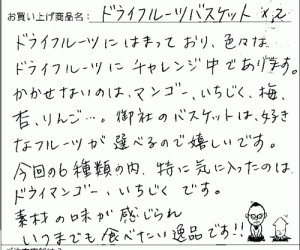 お買い上げ商品名: ドライフルーツバスケット ×2
ドライフルーツにはまっており、色々な
ドライフルーツにチャレンジ中であります。
かかせないのは、マンゴー、いちじく、梅、
杏、りんご…。御社のバスケットは、好き
なフルーツが選べるので嬉しいです。
今回の6種類の内、特に気に入ったのは、
ドライマンゴー、いちじくです。
素材の味が感じられ
いつまでも食べたい逸品です!!